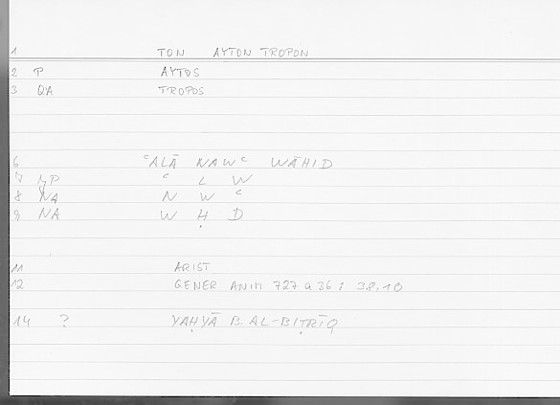 1 TON AYTON TROPON
2 P AYTOS
3 QA TROPOS
6 ʿALĀ NAWʿ WĀḤID
7 LP ʿ L W
8 NA N W ʿ
9 NA W Ḥ D
11 ARIST
12 GENER ANIM 727 a 36 ; 38,10
14 ? YAḤYĀ B. AL-BIṬRĪQ